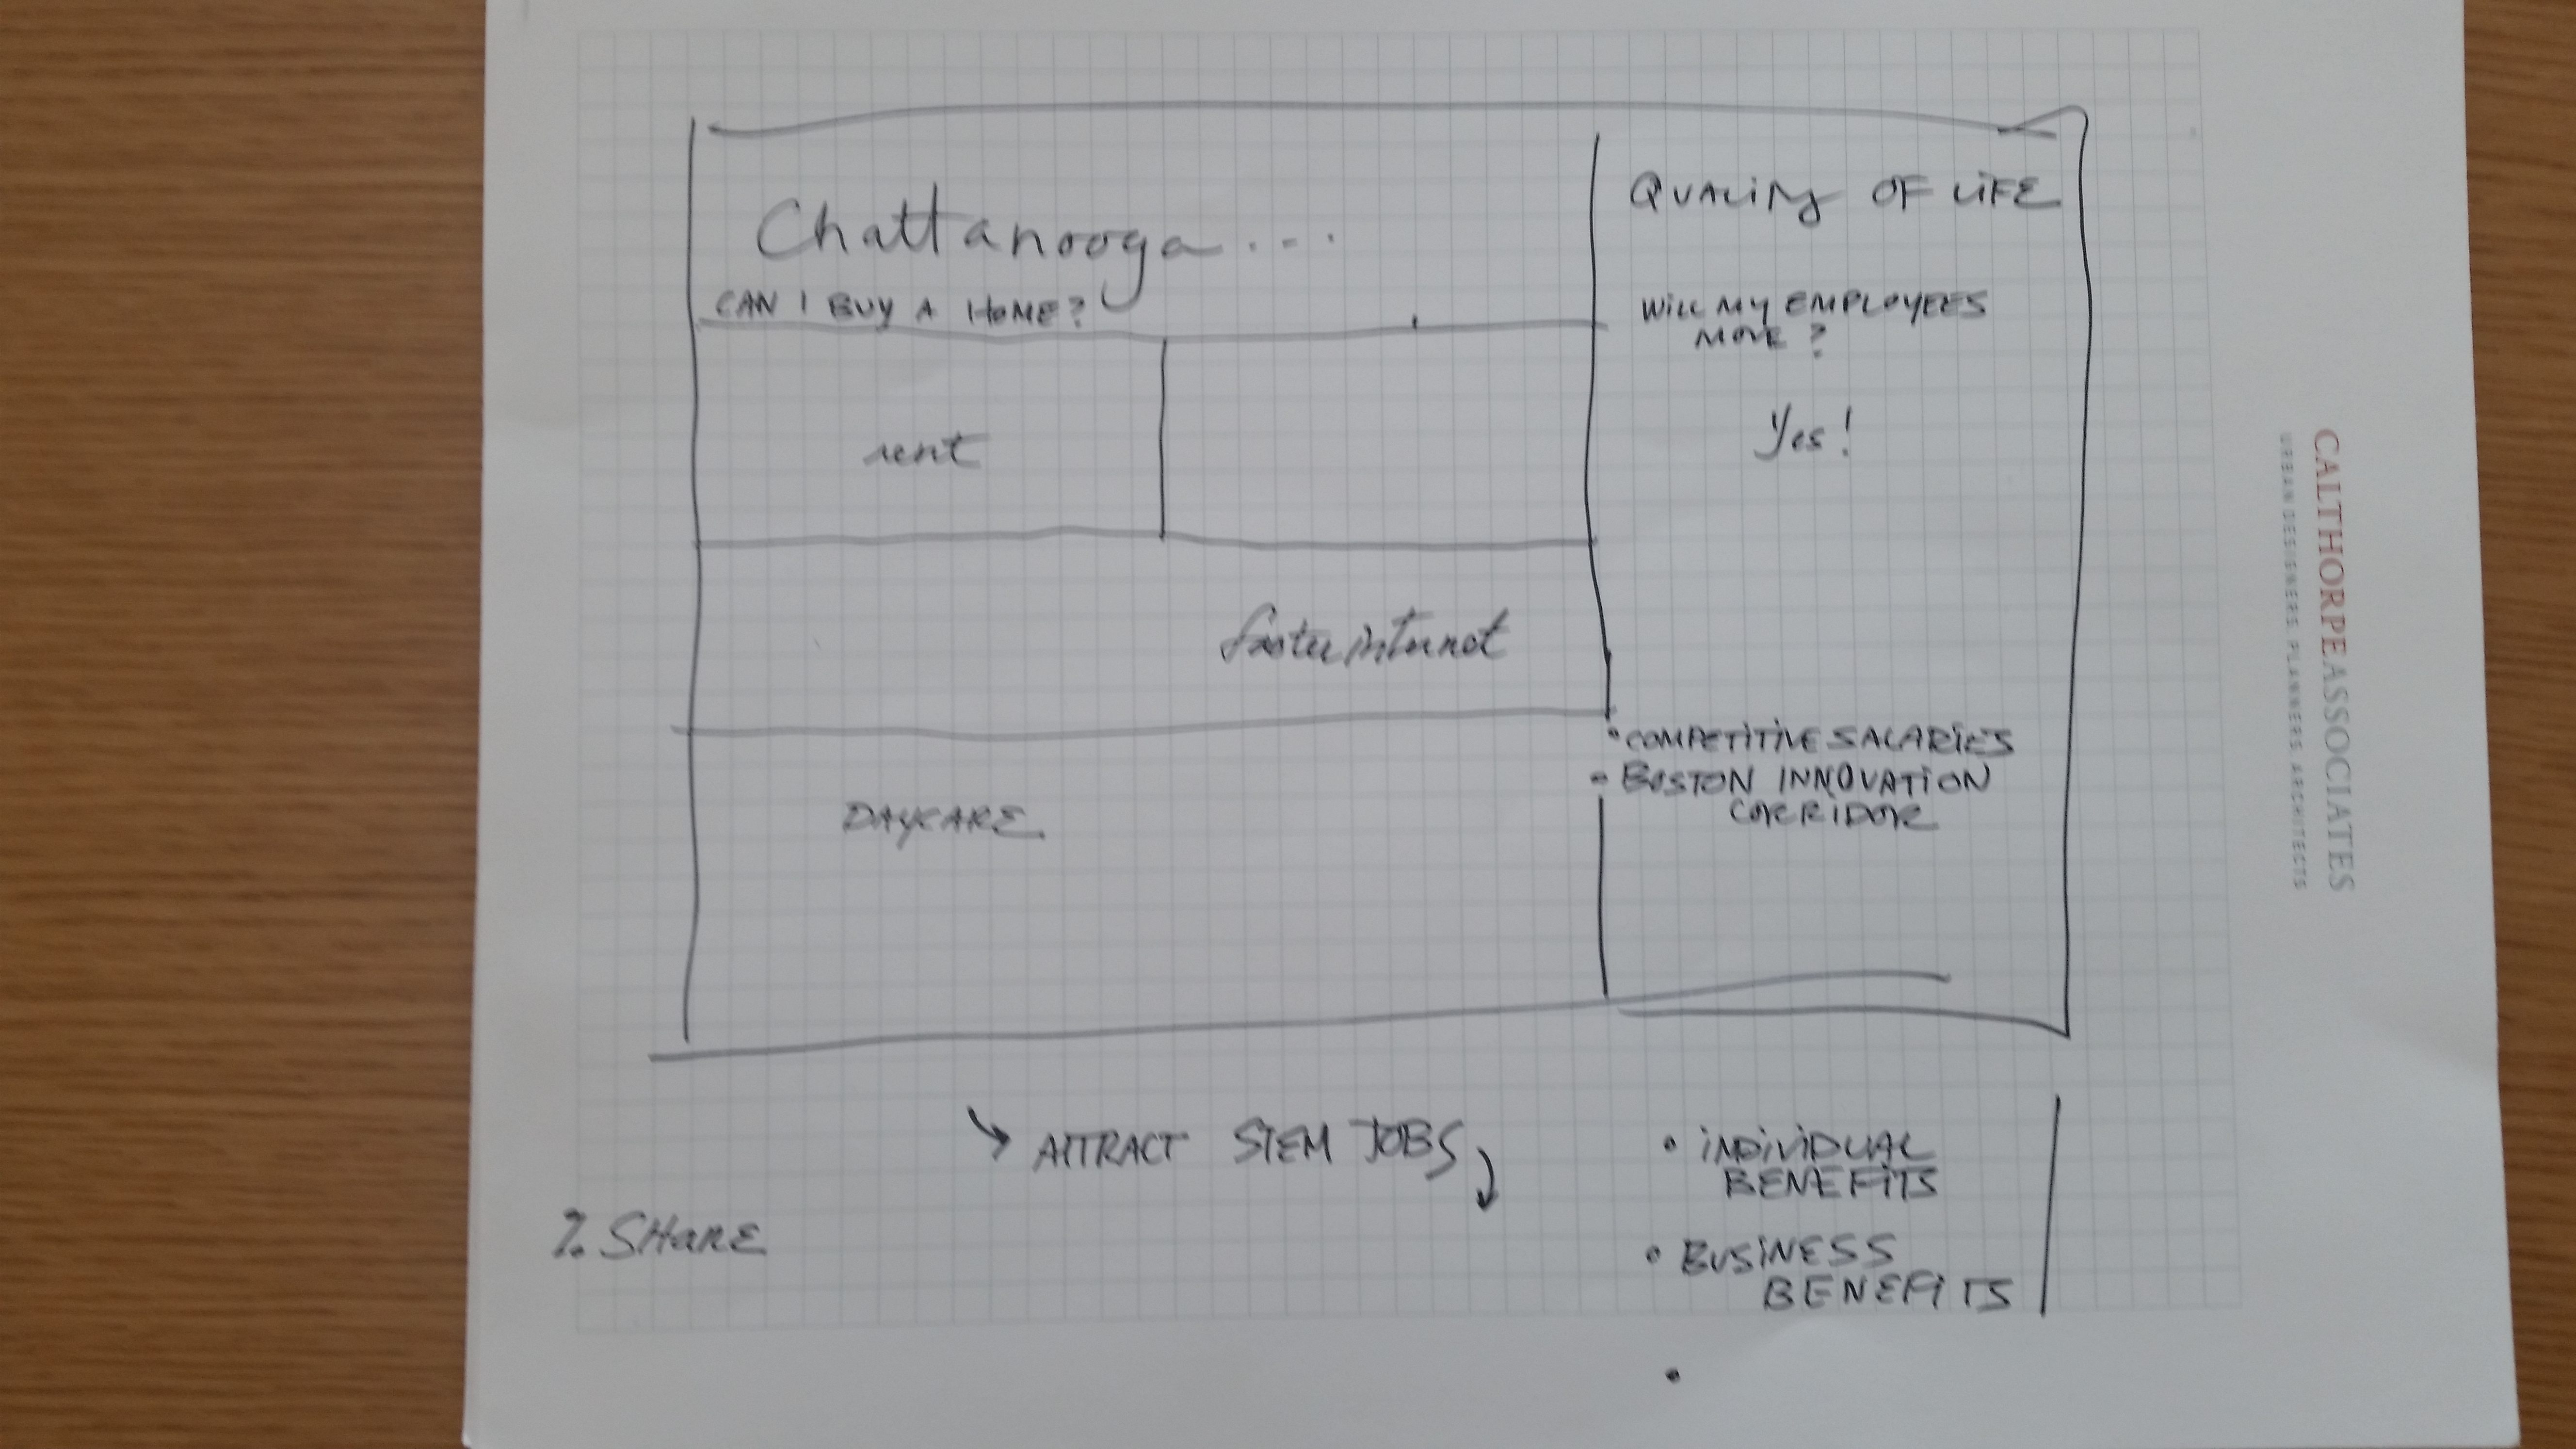 Chattanooga...
CAN I BUY A HOME?
rent
faster internet
DAYCARE
QUALITY OF LIFE
WILL MY EMPLOYEES
MOVE?
Yes!
• COMPETITIVE SALARIES
• BOSTON INNOVATION
CORRIDOR
→ ATTRACT STEM JOBS
% SHARE
• INDIVIDUAL
BENEFITS
• BUSINESS
BENEFITS
•
CALTHORPEASSOCIATES
URBAN DESIGNERS, PLANNERS, ARCHITECTS